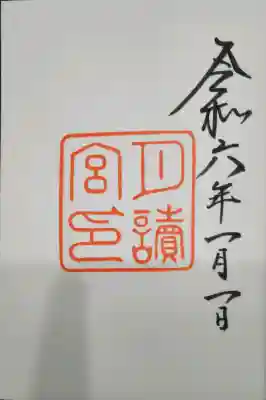 令和六年一月一日
月讀
宮印